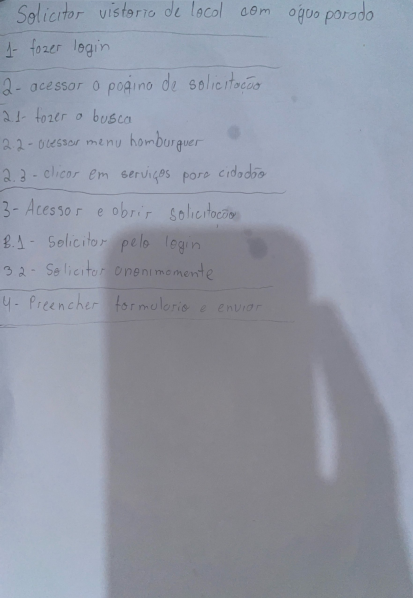 Solicitar vistoria de local com água parada
1- fazer login
2- acessar a página de solicitação
2.1- fazer a busca
2.2- acessar menu hamburguer
2.3- clicar em serviços para cidadão
3- Acessar e abrir solicitação
3.1- Solicitar pelo login
3.2- Solicitar anonimamente
4- Preencher formulario e enviar